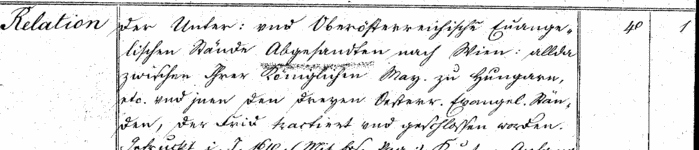 Relation der Unter: vnd Oberösterreichische Euange- 48 1
lischen Stände Abgesandten nach Wien: allda
zwischen Ihrer Königlichen May. zu Hungarn,
etc. vnd jnen den dreyen Oesterr. Evangel. Stän-
den, der Frid tractiert vnd geschlossen worden.
Gedruckt i. J.